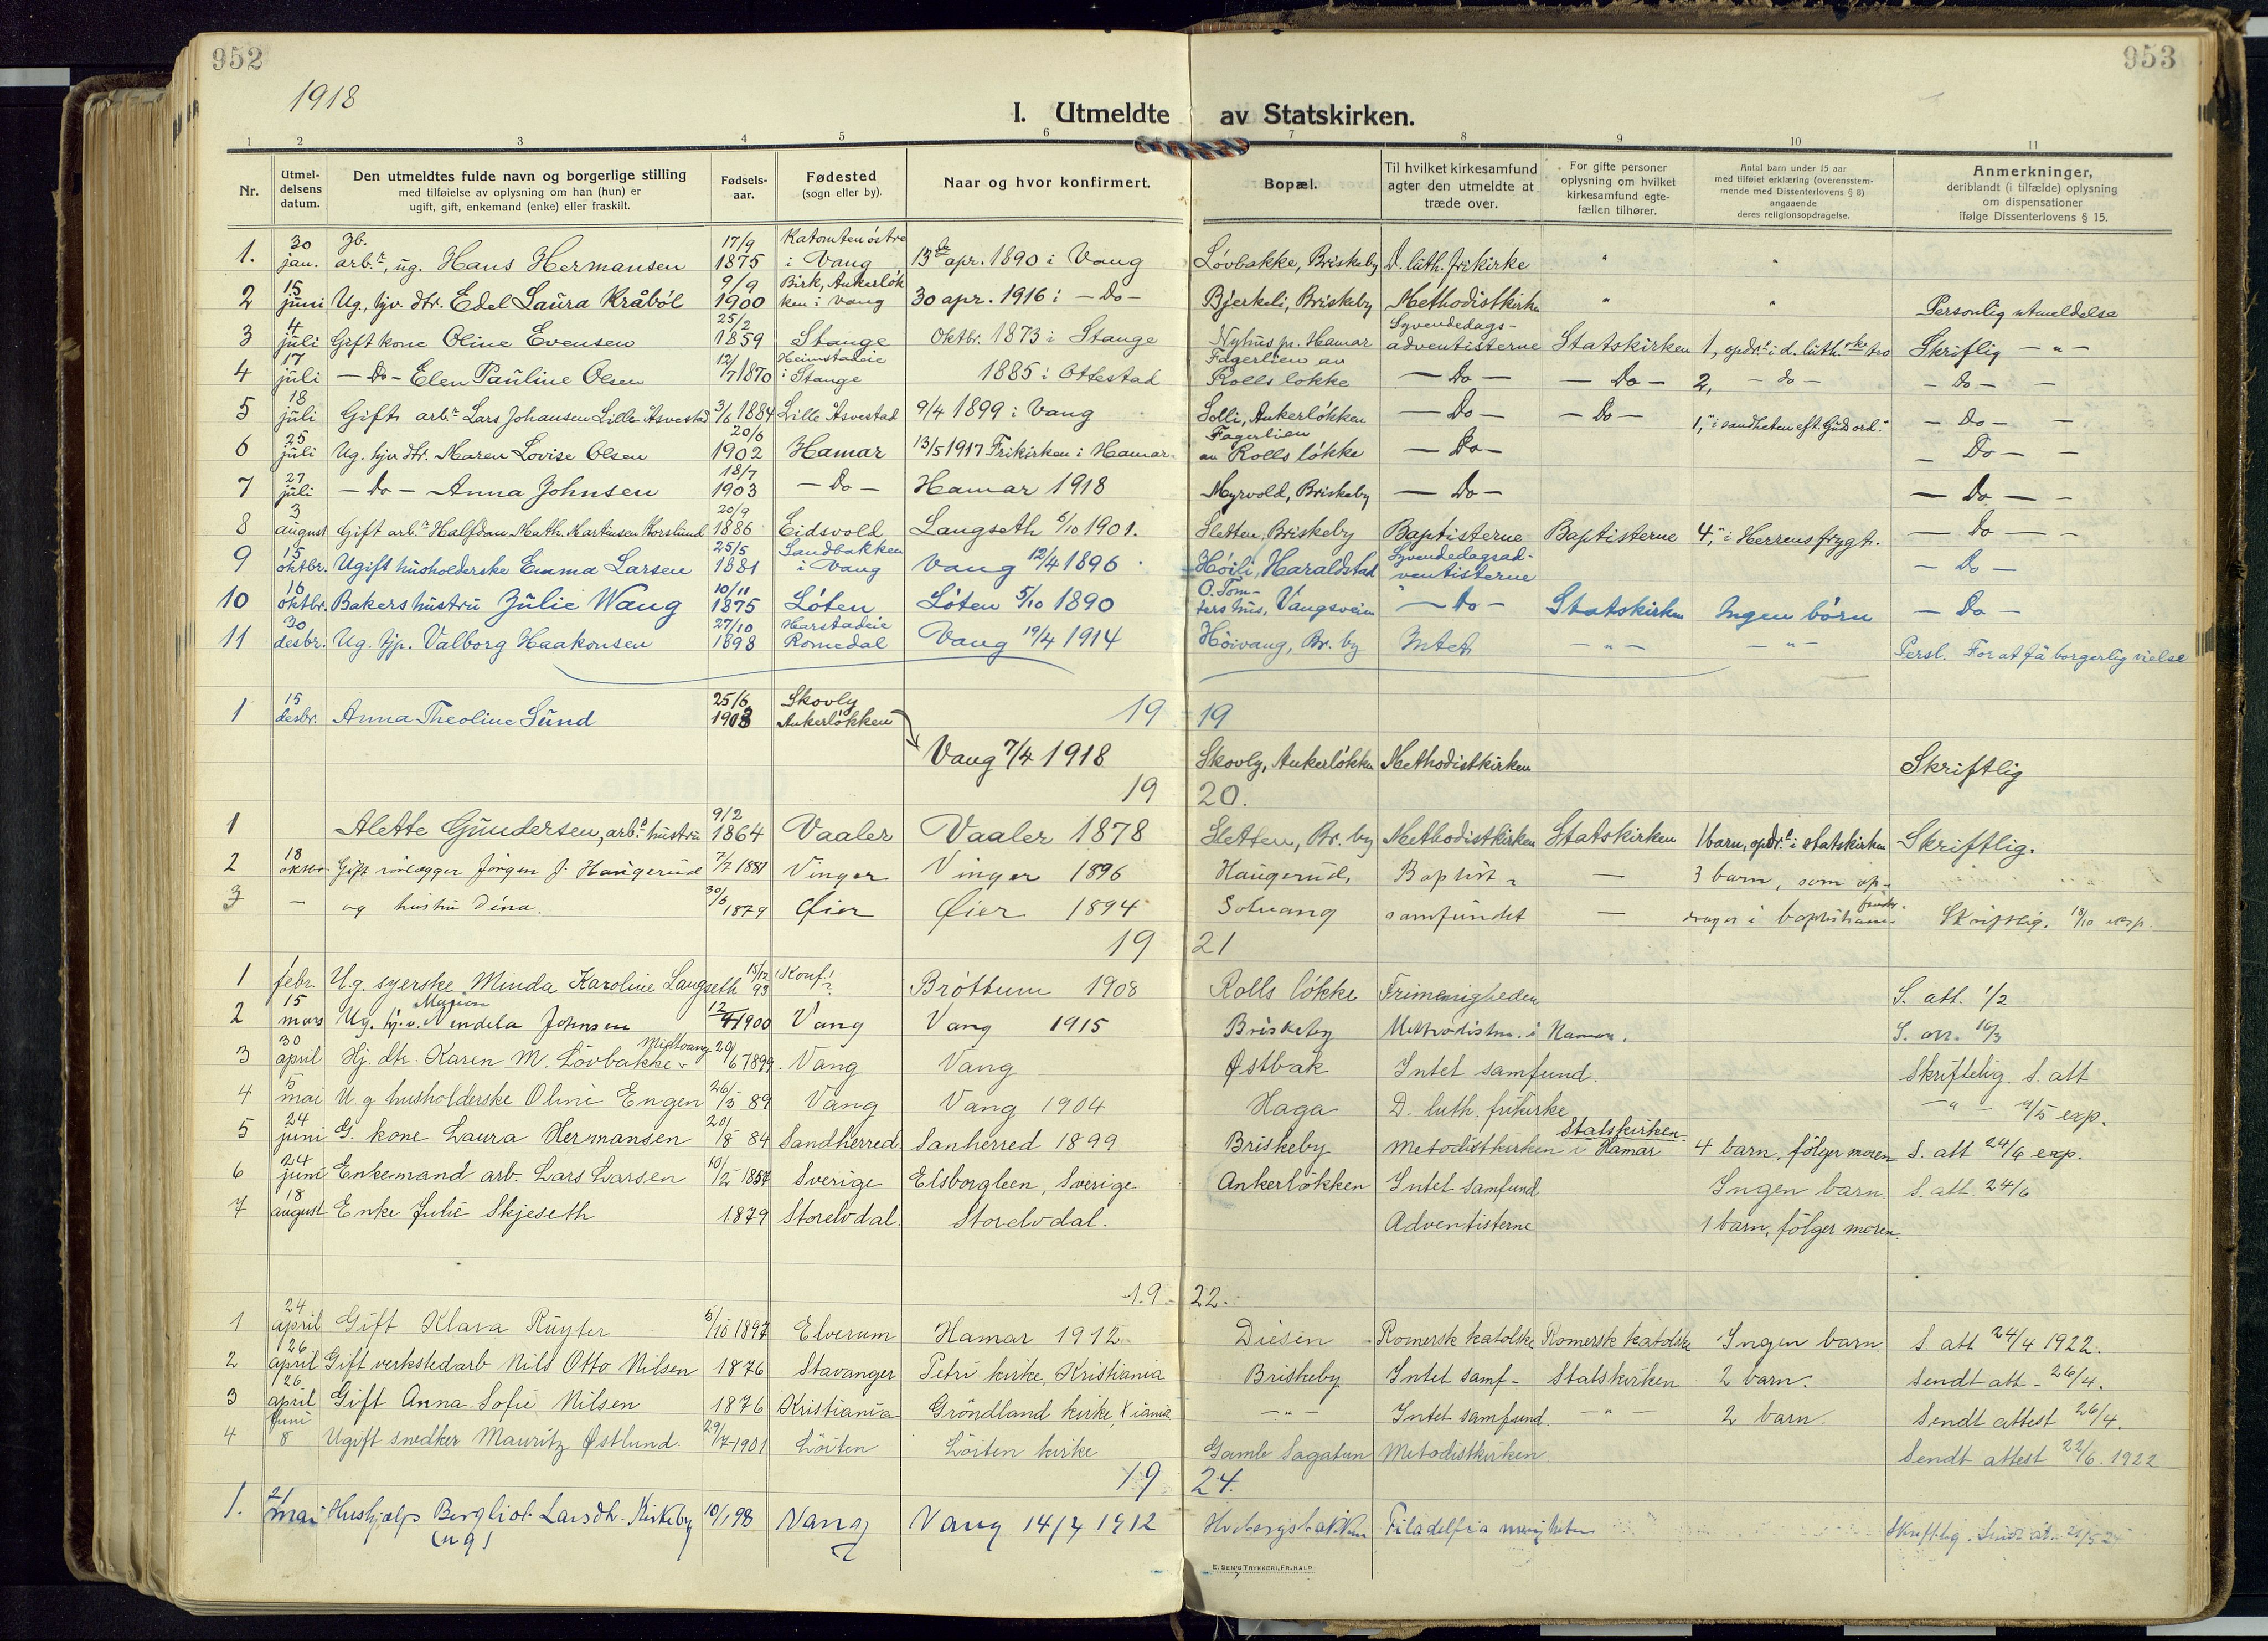 952
953
1918
I. Utmeldte av Statskirken.
1 2 3 4 5 6 7 8 9 10 11
Nr.
Utmel-
delsens
datum.
Den utmeldtes fulde navn og borgerlige stilling
med tilføielse av oplysning om han (hun) er
ugift, gift, enkemand (enke) eller fraskilt.
Fødsels-
aar.
Fødested
(sogn eller by).
Naar og hvor konfirmert.
Bopæl.
Til hvilket kirkesamfund
agter den utmeldte at
træde over.
For gifte personer
oplysning om hvilket
kirkesamfund egte-
fællen tilhører.
Antal barn under 15 aar
med tilføiet erklæring (overensstem-
mende med Dissenterlovens § 8)
angaaende
deres religionsopdragelse.
Anmerkninger,
deriblandt (i tilfælde) oplysning
om dispensationer
ifølge Dissenterlovens § 15.
1. 30 jan. arb.r, ug. Hans Hermansen 17/9 1875 i Vang 13de apr. 1890 i Vang Lövbakke, Briskeby D. luth. frikirke " "
2 15 juni Ug., hjv. dtr. Edel Laura Kråböl 9/9 1900 Birk, Ankerlök ken i Vang 30 apr. 1916 i - Do - Bjerkeli, Briskeby Methodistkirken " " Personlig utmeldelse
3 4 juli Gift kone Oline Evensen 25/2 1859 Stange Oktbr. 1873 i Stange Nyhus pr. Hamar Syvendedags- adventisterne Statskirken 1, opdr. i d. luth. ske tro Skriftlig - " -
4 17 juli - Do - Elen Pauline Olsen 12/7 1870 Heimstadeie i Stange 1885 i Ottestad Fagerlien av Rolls lökke - Do - - Do - 2, - do - - do -
5 18 juli Gift arb.r Lars Johansen Lille Åsvestad 3/6 1884 Lille Åsvestad 9/4 1899 i Vang Solli, Ankerlökken - Do - - Do - 1, "i sandheten eft. Guds ord." - do -
6 25 juli Ug. hjv. dtr. Maren Lovise Olsen 20/6 1902 Hamar 13/5 1917 Frikirken i Hamar Fagerlien av Rolls lökke - Do - - Do -
7 27 juli - Do - Anna Johnsen 18/7 1903 - Do - Hamar 1918 Myrvold, Briskeby - Do - - Do -
8 3 august Gift arb.r Halfdan Math. Martinsen Korslund 20/9 1886 Eidsvold Langseth 6/10 1901. Sletten, Briskeby Baptisterne Baptisterne 4, "i Herrens frygt. - Do -
9 15 oktbr. Ugift husholderske Emma Larsen 25/5 1881 Sandbakken i Vang Vang 12/4 1896 Höili, Haraldstad Syvendedagsad- ventisterne - Do -
10 16 oktbr. Bakers hustru Julie Wang 10/11 1875 Löten Löten 5/10 1890 O. Tom- ters hus, Vangsveien - Do - Statskirken Ingen börn - Do -
11 30 desbr. Ug. hjp. Valborg Haakonsen 27/10 1898 Harstadeie Romedal Vang 19/4 1914 Höivang, Br. by Intet - " - - " - Persl. For at få borgerlig vielse
19 19
1 15 desbr. Anna Theoline Sund 25/6 1903 Skovly Ankerlökken
Vang 7/4 1918 Skovly, Ankerlökken Methodistkirken Skriftlig
19 20.
1 Alette Gundersen, arb.s hustru 9/2 1864 Vaaler Vaaler 1878 Sletten, Br. by Methodistkirken Statskirken 1 barn, opdr. i statskirken Skriftlig.
2 18 oktbr. Gift rörlegger Jörgen J. Haugerud 7/7 1881 Vinger Vinger 1896 Haugerud, Baptist- — 3 barn, som op-
3 — og hustru Dina. 30/6 1879 Øier Øier 1894 Solvang samfundet — drages i baptistsam- fundet. Skriftlig. 18/10 exp.
19 21
1 1 febr. Ug. syerske Minda Karoline Langseth 15/12 93 Konf! ? Bröttum 1908 Rolls lökke Frimenigheden S. att. 1/2
2 15 mars Ug. hj.v. Vendela Johnsen 12/4 1900 Vang Vang 1915 Briskeby Methodistm. i Hamar. S. att. 16/3
3 30 april Hj. dtr. Karen M. Lövbakke Midtvang 20/6 1899 Vang Vang Østbak Intet samfund. Skriftelig. S. att
4 5 mai U.g husholderske Oline Engen 26/5 89 Vang Vang 1904 Haga D. luth. frikirke - " - 4/5 exp.
5 24 juni G. kone Laura Hermansen 20/8 84 Sandherred Sanherred 1899 Briskeby Metodistkirken i Hamar Statskirken 4 barn, fölger moren S. att 24/6 exp.
6 24 juni Enkemand arb. Lars Larsen 10/2 1857 Sverige Elsborgleen, Sverige Ankerlökken Intet samfund Ingen barn. S. att. 24/6
7 18 august Enke Julie Skjeseth 1879 Storelvdal. Storelvdal. Adventisterne 1 barn, fölger moren.
19 22.
1 24 april Gift Klara Ruyter 5/10 1897 Elverum Hamar 1912 Diesen Romersk katolske Romersk katolske Ingen barn S. att 24/4 1922.
2 26 april Gift verkstedarb Nils Otto Nilsen 1876 Stavanger Petri kirke, Kristiania Briskeby Intet samf- Statskirken 2 barn. Sendt att - 26/4.
3 26 april Gift Anna Sofie Nilsen 1876 Kristiania Gröndland kirke, Kiania - " - Intet samfund - " - 2 barn. Sendt attest 26/4.
4 juni 8 Ugift snedker Mauritz Østlund. 29/7 1901 Löiten Löiten kirke Gamle Sagatun Metodistkirken Sendt attest 22/6. 1922
19 24.
1. 21 mai Hushjælp Bergliot Larsdtr. Kirkeby (ug) 10/1 98 Vang Vang 14/4 1912 Hvebergsbakken Filadelfia menigheten Skriftlig. Sendt att. 21/5 24
E. SEM'S TRYKKERI, FR.HALD